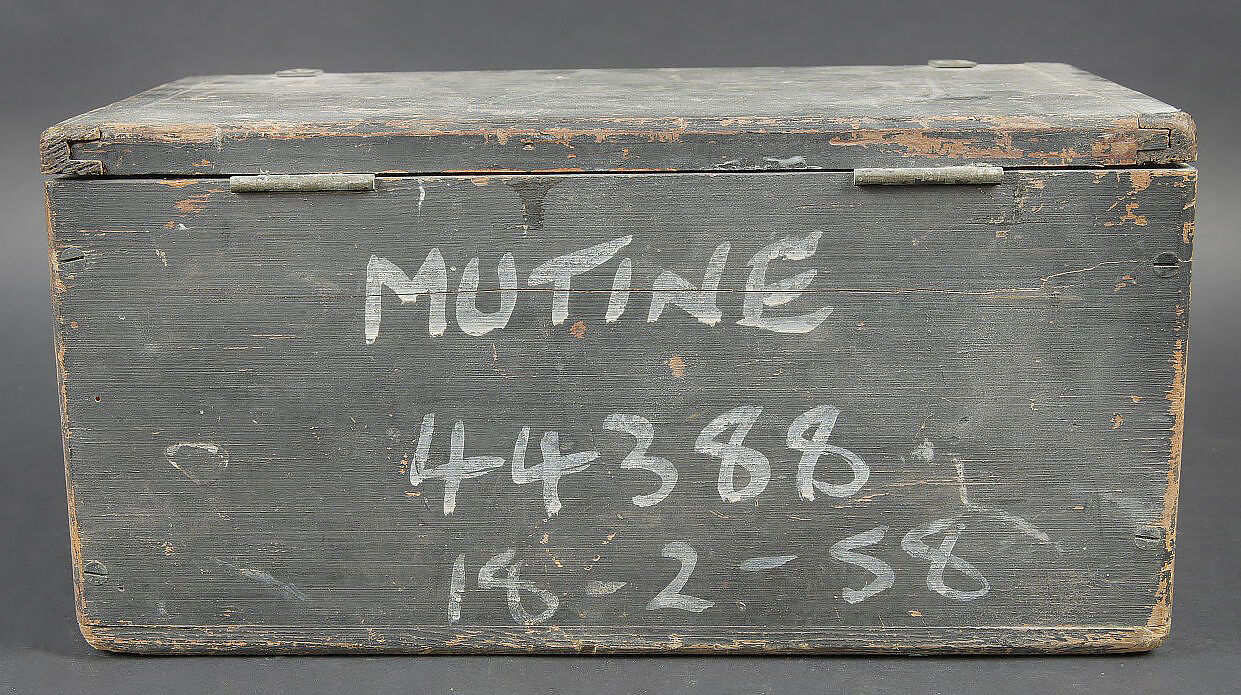 MUTINE
44388
18-2-58